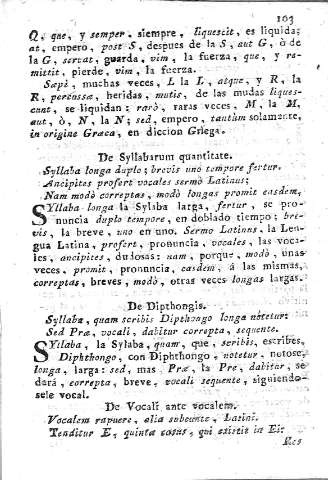 103
Q, que, y semper, siempre, liquescit, es liquida;
at, empero, post S, despues de la S, aut G, ò de
la G, servat, guarda, vim, la fuerza, que, y re-
mittit, pierde, vim, la fuerza.
Sapè, muchas veces, L la L, atque, y R, la
R, percussa, heridas, mutis, de las mudas liques-
cunt, se liquidan: rarò, raras veces, M, la M,
aut, ò, N, la N; sed, empero, tantùm solamente,
in origine Græca, en diccion Griega.
De Syllabarum quantitate.
Syllaba longa duplo; brevis uno tempore fertur.
Ancipites profert vocales sermò Latinus;
Nam modò correptas, modò longas promit easdem.
SYllaba longa la Sylaba larga, fertur, se pro-
nuncia duplo tempore, en doblado tiempo: bre-
vis, la breve, uno en uno. Sermo Latinus. la Len-
gua Latina, profert, pronuncia, vocales, las voca-
les, ancipites, dudosas: nam, porque, modò, unas
veces, promit, pronuncia, easdem, á las mismas,
correptas, breves, modò, otras veces longas largas.
De Dipthongis.
Syllabæ, quam scribis Dipthongo longa notetur:
Sed Præ, vocali, dabitur correpta, sequente.
SYlaba, la Sylaba, quam, que, scribis, escribes,
Diphthongo, con Diphthongo, notetur, notese,
longa, larga: sed, mas Præ, la Pre, dabitur, se
dará, correpta, breve, vocali sequente, siguiendo-
sele vocal.
De Vocali ante vocalem.
Vocalem rapuere, alia subeunte, Latini.
Tenditur E, quinta casus, qui existit in Ei:
Res